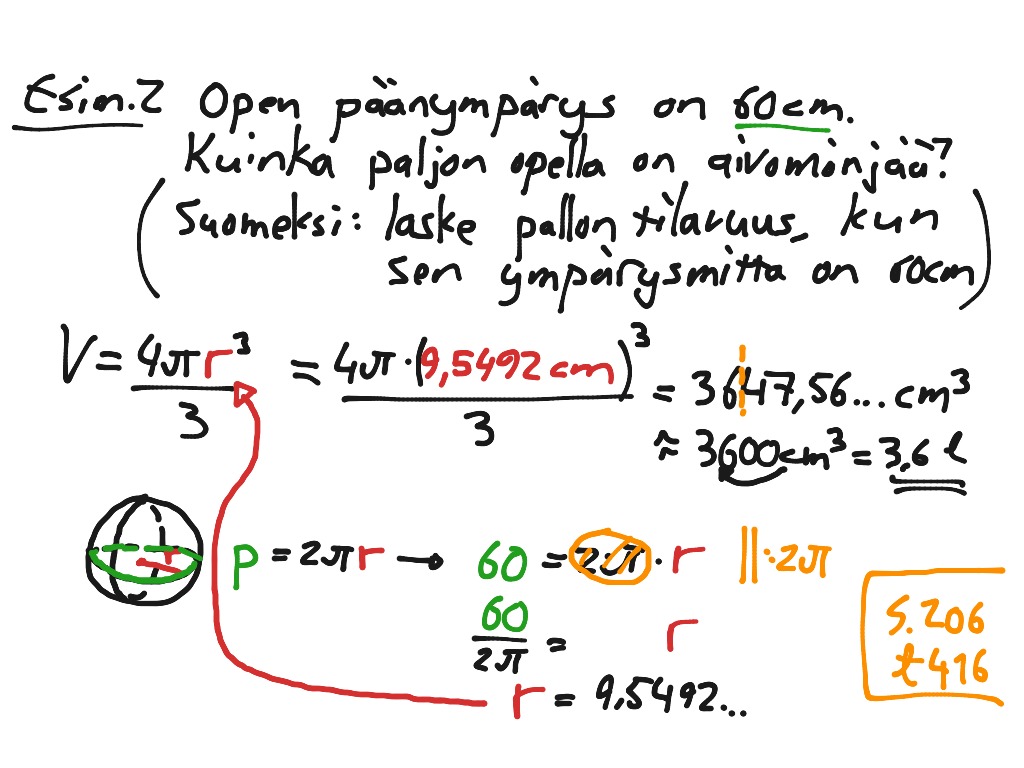 Esim.2 Open päänympärys on 60cm.
Kuinka paljon opella on aivominjää?
(Suomeksi: laske pallon tilavuus, kun
sen ympärysmitta on 60cm)
V = 4πr³/3 = 4π·(9,5492 cm)³/3 = 3647,56... cm³
≈ 3600cm³ = 3,6 l
p = 2πr → 60 = 2π · r ||:2π
60/2π = r
r = 9,5492...
s.206
t416